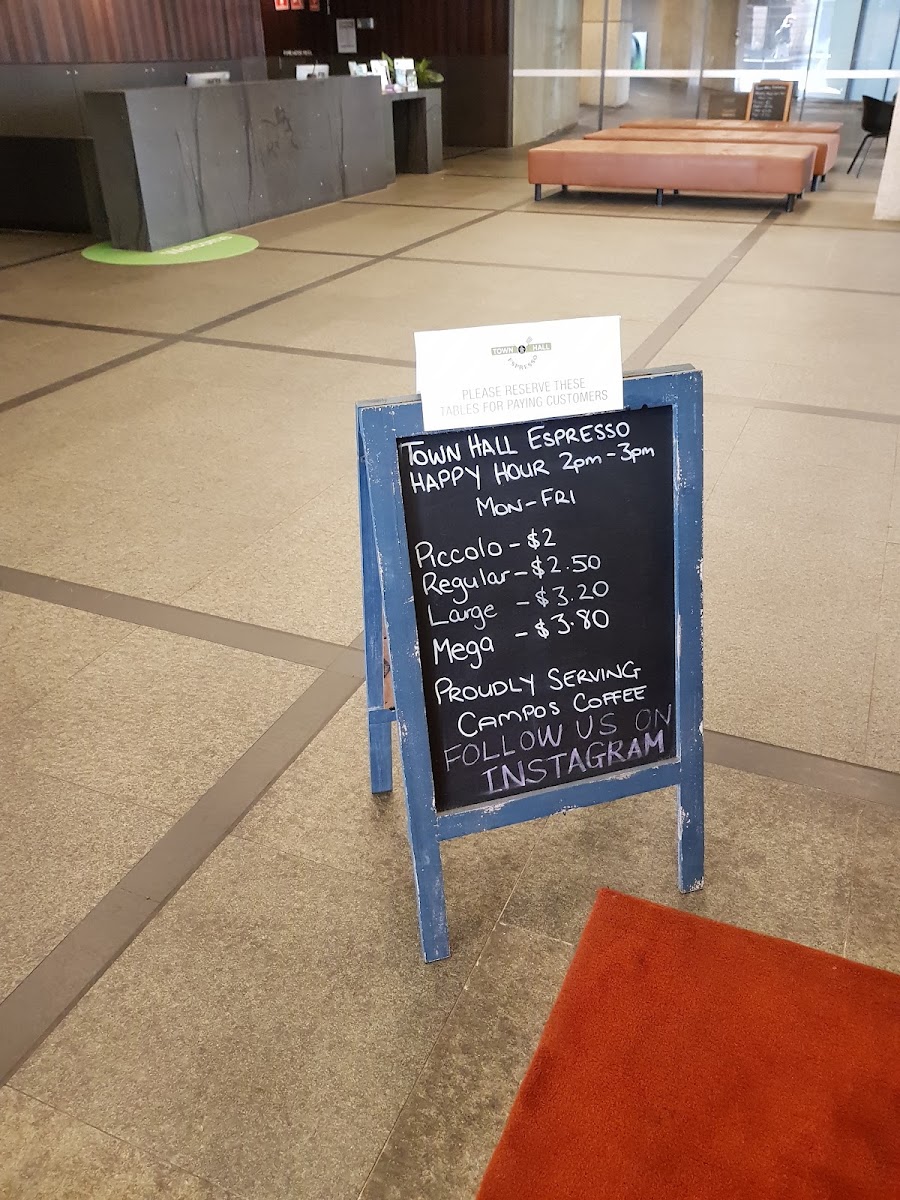 Welcome
TOWN HALL
ESPRESSO
PLEASE RESERVE THESE
TABLES FOR PAYING CUSTOMERS
TOWN HALL ESPRESSO
HAPPY HOUR 2pm-3pm
MON-FRI
Piccolo - $2
Regular - $2.50
Large - $3.20
Mega - $3.80
PROUDLY SERVING
CAMPOS COFFEE
FOLLOW US ON
INSTAGRAM